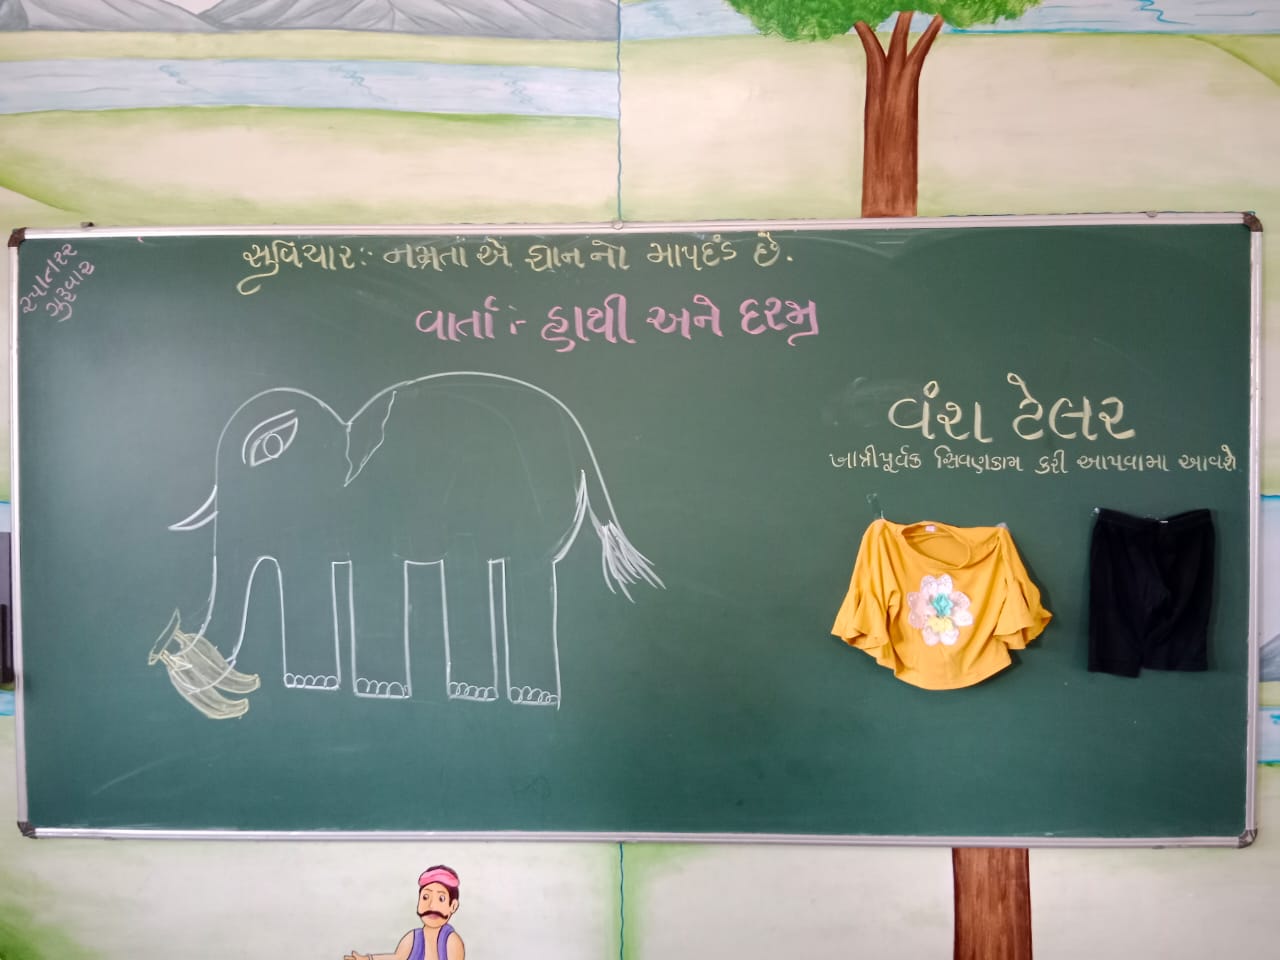 ગુરૂવાર
સુવિચાર:- નમ્રતા એ જ્ઞાનનો માપદંડ છે.
વાર્તા:- હાથી અને દરજી
વંશ ટેલર
ખાત્રીપૂર્વક સિવણકામ કરી આપવામા આવશે